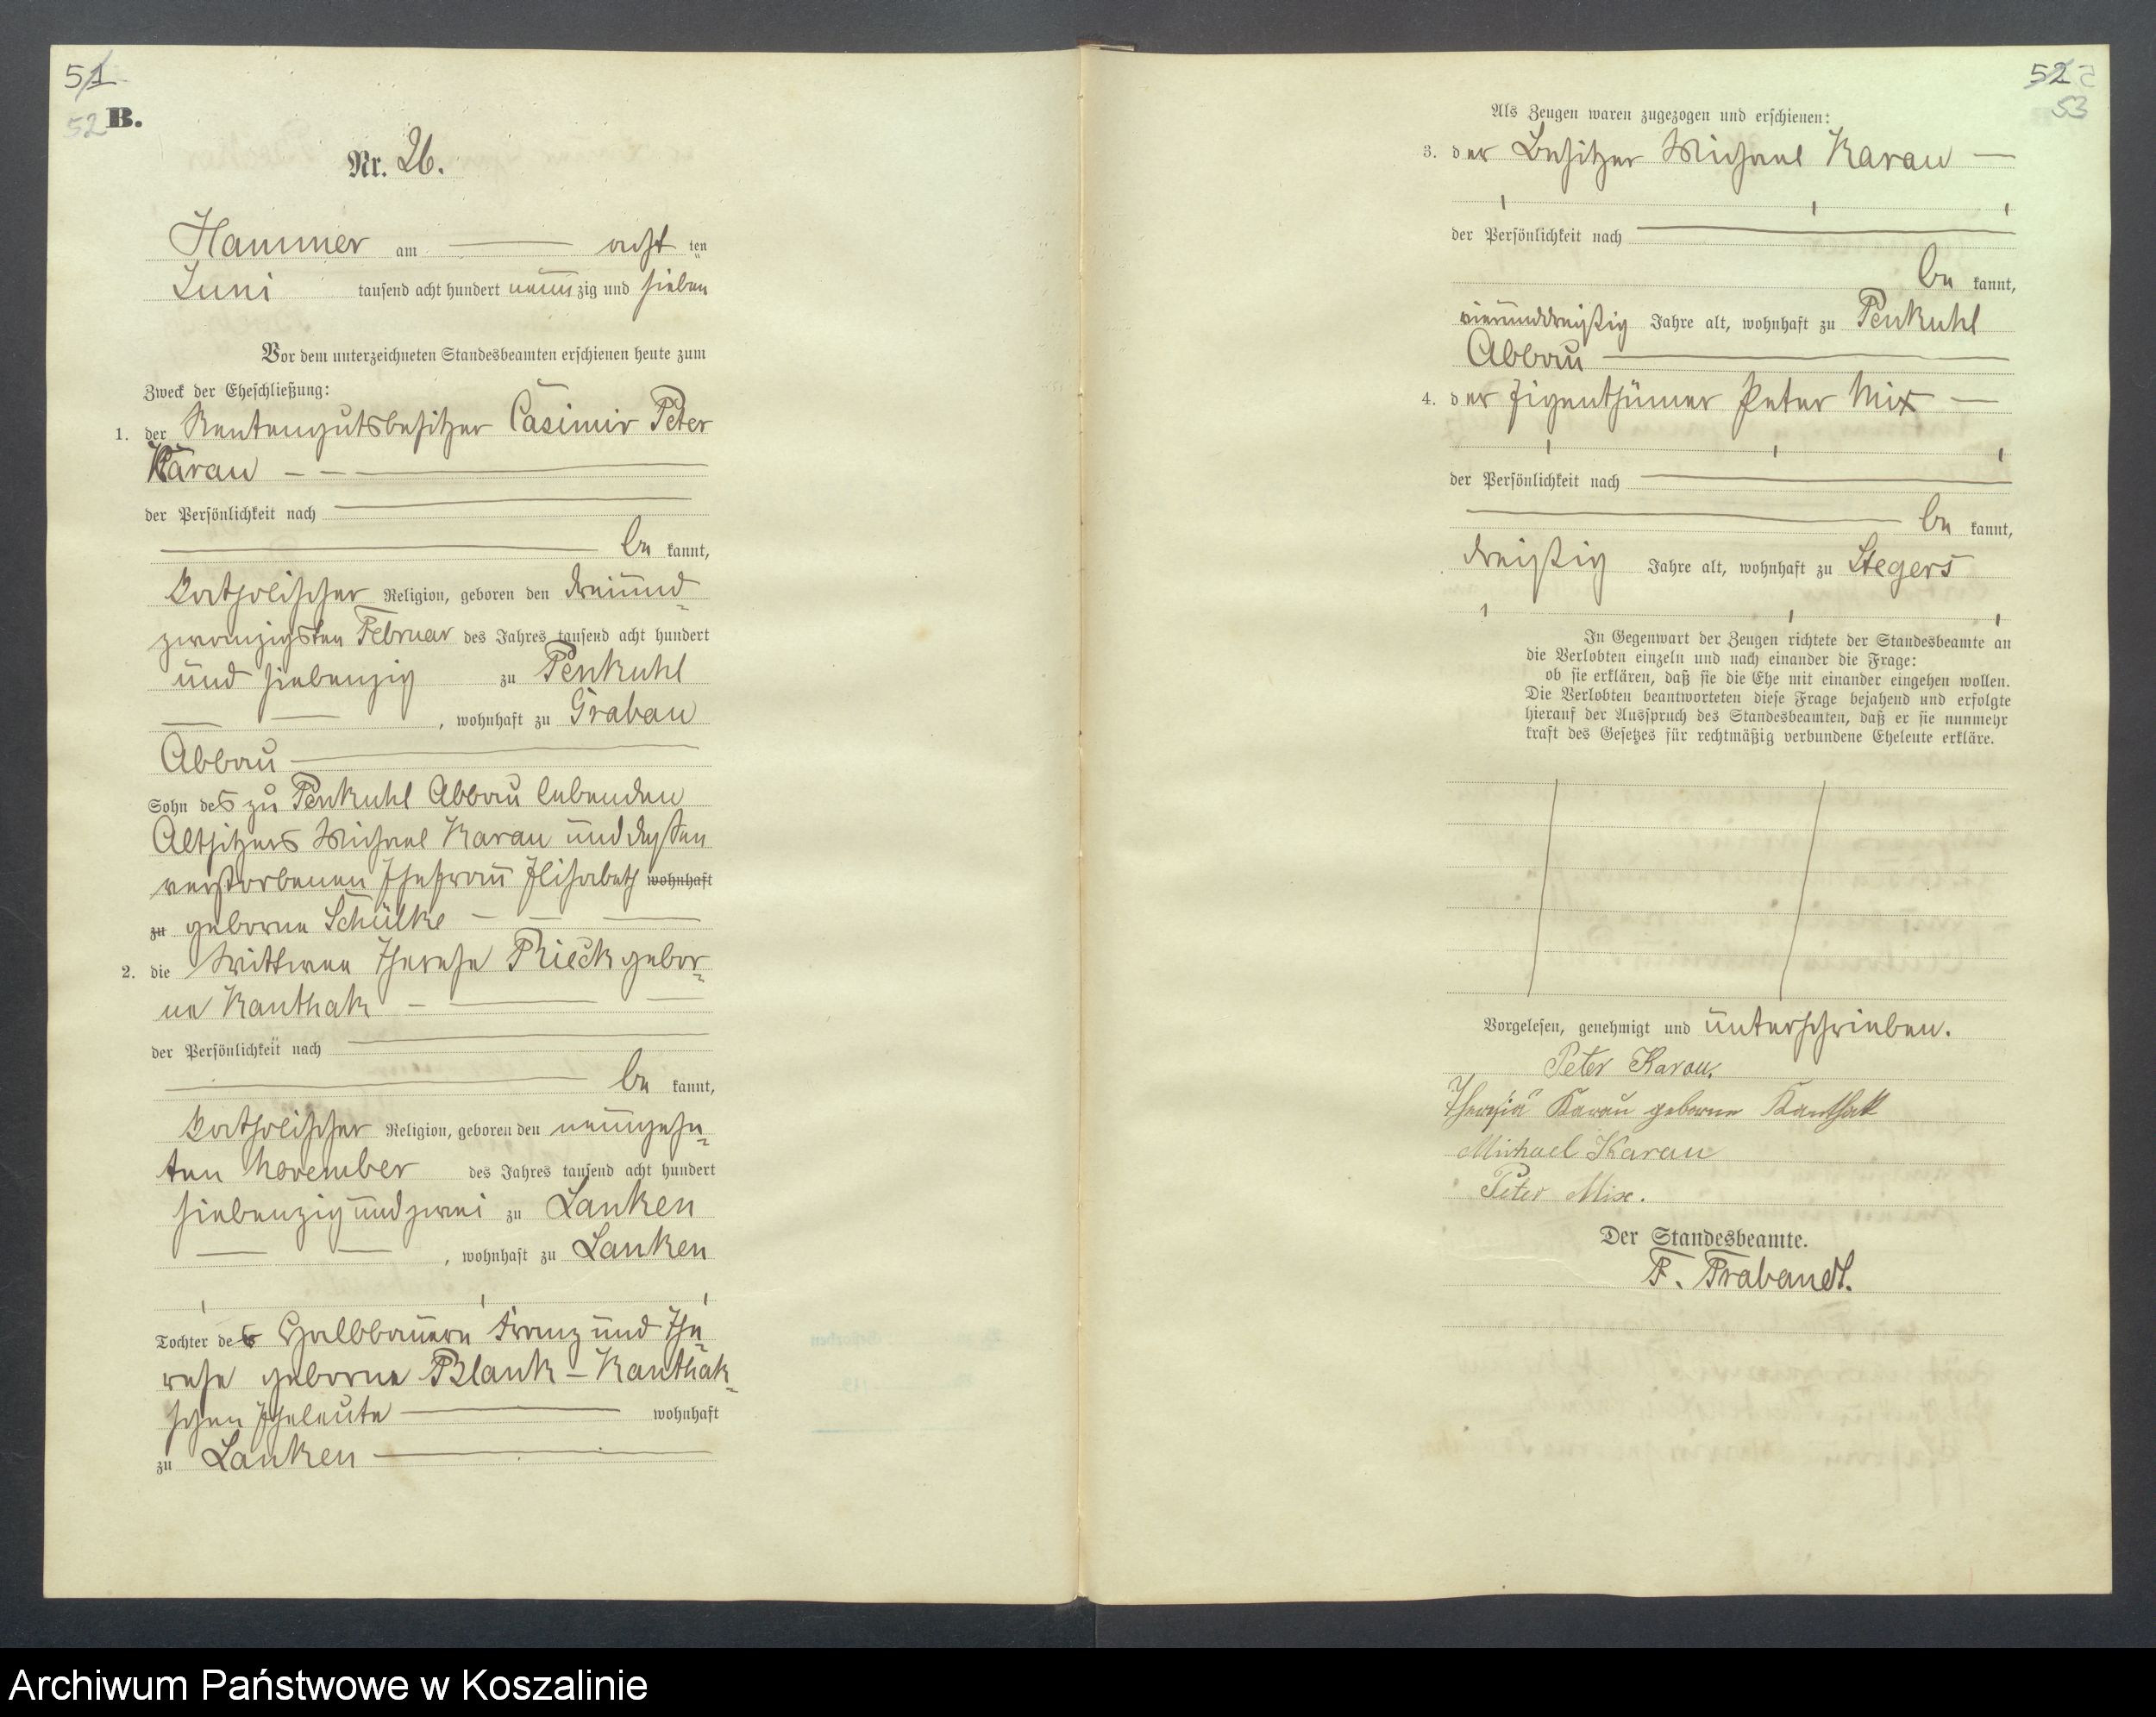 51
52 B.
Nr. 26.
Hammer am acht ten
Juni tausend acht hundert neunzig und sieben
Vor dem unterzeichneten Standesbeamten erschienen heute zum
Zweck der Eheschließung:
1. der Rentengutsbesitzer Casimir Peter
Karau
der Persönlichkeit nach
be kannt,
katholischer Religion, geboren den dreiund-
zwanzigsten Februar des Jahres tausend acht hundert
und siebenzig zu Penkuhl
, wohnhaft zu Grabau
Abbau
Sohn des zu Penkuhl Abbau lebenden
Altsitzers Michael Karau und dessen
verstorbenen Ehefrau Elisabeth wohnhaft
zu geborne Schülke
2. die Wittwee Therese Rieck gebor-
ne Kanthak
der Persönlichkeit nach
be kannt,
katholischer Religion, geboren den neunzehn-
ten November des Jahres tausend acht hundert
siebenzig und zwei zu Lanken
, wohnhaft zu Lanken
Tochter der Halbbauern Franz und The-
rese geborne Blank - Kanthak-
schen Eheleute wohnhaft
zu Lanken
52
53
Als Zeugen waren zugezogen und erschienen:
3. der Besitzer Michael Karau
der Persönlichkeit nach
be kannt,
vierunddreißig Jahre alt, wohnhaft zu Penkuhl
Abbau
4. der Eigenthümer Peter Mix
der Persönlichkeit nach
be kannt,
dreißig Jahre alt, wohnhaft zu Stegers
In Gegenwart der Zeugen richtete der Standesbeamte an
die Verlobten einzeln und nach einander die Frage:
ob sie erklären, daß sie die Ehe mit einander eingehen wollen.
Die Verlobten beantworteten diese Frage bejahend und erfolgte
hierauf der Ausspruch des Standesbeamten, daß er sie nunmehr
kraft des Gesetzes für rechtmäßig verbundene Eheleute erkläre.
Vorgelesen, genehmigt und unterschrieben.
Peter Karau.
Theresia Karau geborne Kanthak
Michael Karau
Peter Mix.
Der Standesbeamte.
F. Trabandt.
Archiwum Państwowe w Koszalinie